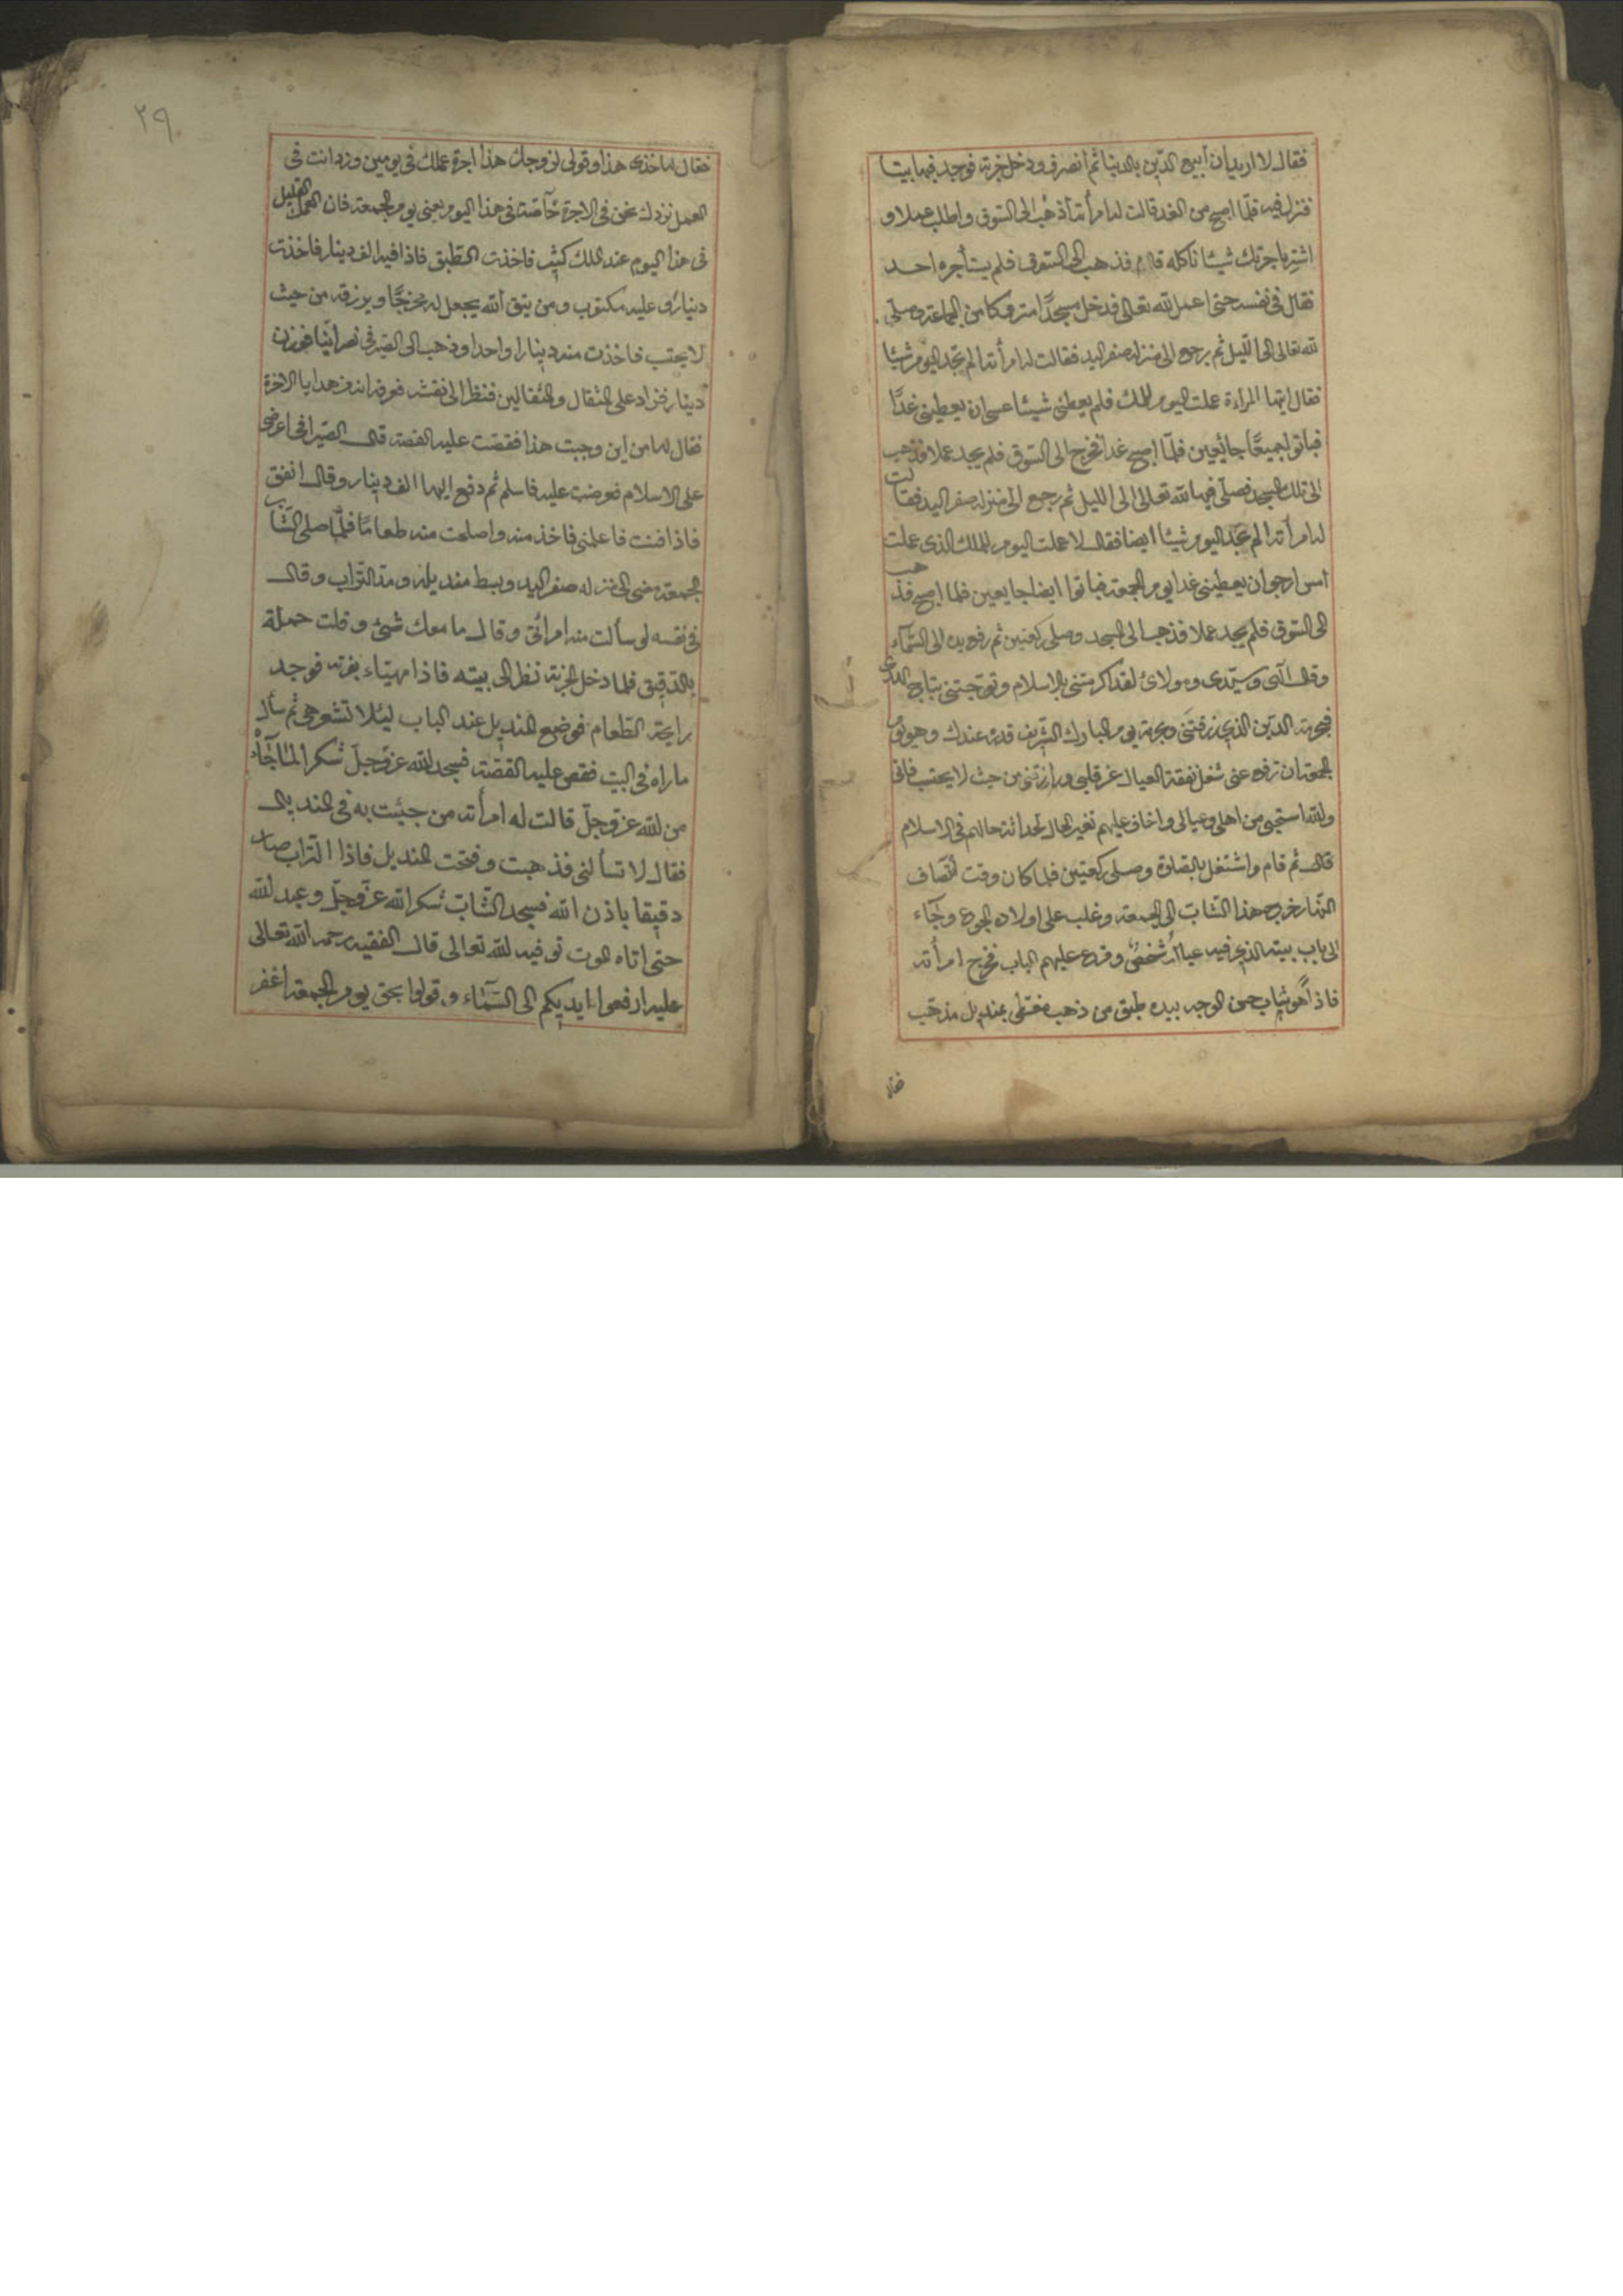 فقال لا اريد ان ابيع الدين بالدنيا ثم انصرف ودخل خربة فوجد فيها بيتا
فنزل فيه فلما اصبح من الغد قالت له امرأته اذهب الى السوق واطلب عملا و
اشتر باجرتك شيئا ناكله قال فذهب الى السوق فلم يستأجره احد
فقال فى نفسه حتى اعمل لله تعالى فدخل مسجدا متروكا من الجماعة وصلى
لله تعالى الى الليل ثم يرجع الى منزله صفر اليد فقالت له امرأته الم تجد اليوم شيئا
فقال ايتها المراءة عملت اليوم للملك فلم يعطنى شيئا عسى ان يعطينى غدا
فباتوا جميعا جائعين فلما اصبح غدا فخرج الى السوق فلم يجد عملا فذهب
الى تلك المسجد فصلى فيها لله تعالى الى الليل ثم رجع الى منزله صفر اليد فقالت
له امرأته الم تجد اليوم شيئا ايضا فقال لا عملت اليوم للملك الذى عملت
امس ارجو ان يعطينى غدا يوم الجمعة فباتوا ايضا جايعين فلما اصبح فذهب
الى السوق فلم يجد عملا فذهب الى المسجد وصلى ركعتين ثم رفع يده الى السماء
وقال الهى وسيدى ومولائ لقد اكرمتنى بالاسلام وتوجتنى بتاج الهدى
فبحرمة الدين الذى رزقتنى وبحرمة يوم المبارك الشريف قدره عندك وهو يوم
الجمعة ان ترفع عنى شغل نفقة العيال عن قلبى وارزقنى من حيث لا يحتسب فانى
والله استحيى من اهلى وعيالى واخاف عليهم تغير الحال لحداثة حالهم فى الاسلام
قال ثم قام واشتغل بالصلوة وصلى ركعتين فلما كان وقت انتصاف
النهار خرج هذا الشاب الى الجمعة وغلب على اولاده الجوع وجآء
الى باب بيته الذى فيه عياله شخص وقرع عليهم الباب فخرج امرأته
فاذا هو شاب حسن الوجه بيده طبق من ذهب مغطى بمنديل مذهب
فقال
٢٩
فقال لها خذى هذا وقولى لزوجك هذا اجرة عملك فى يومين وزد انت فى
العمل نزدك نحن فى الاجرة خآصة فى هذا اليوم يعنى يوم الجمعة فان العمل القليل
فى هذا اليوم عند الملك كثير فاخذت الطبق فاذا فيه الف دينار فاخذت
دينارى عليه مكتوب ومن يتق الله يجعل له مخرجا ويرزقه من حيث
لا يحتسب فاخذت منه دينارا واحدا وذهب الى الصيرفى نصرانيا فوزن
دينار فزاد على المثقال والمثقالين فنظر الى نقشه فعرف انه من هدايا الاخرة
فقال لها من اين وجبت هذا فقصت عليه القصة قال الصيرافى اعرضى
على الاسلام فعرضت عليه فاسلم ثم دفع اليها الف دينار وقال انفق
فاذا فنت فاعلمنى فاخذ منه واصلحت منه طعاما فلما صلى الشاب
الجمعة مضى الى منزله صفر اليد وبسط منديله ومد التراب وقال
فى نفسه لو سألت منه امرائتى وقال ما معك شئ وقلت حملة
بالدقيق فلما دخل الخربة نظر الى بيته فاذا مهياء بفرته فوجد
رايحة الطعام فوضع المنديل عند الباب ليئلا تشعر هى ثم سأل
ما راه فى البيت فقص عليه القصة فسجد لله عز وجل شكرا لما جآء
من الله عز وجل قالت له امرأته من جيئت به فى المنديل
فقال لا تسألنى فذهبت وفتحت المنديل فاذا التراب صار
دقيقا باذن الله فسجد الشاب شكر الله عز وجل وعبد لله
حتى اتاه الموت توفيه لله تعالى قال الفقيه رحمه الله تعالى
عليه ارفعوا ايديكم الى السمآء وقولوا بحق يوم الجمعة اغفر